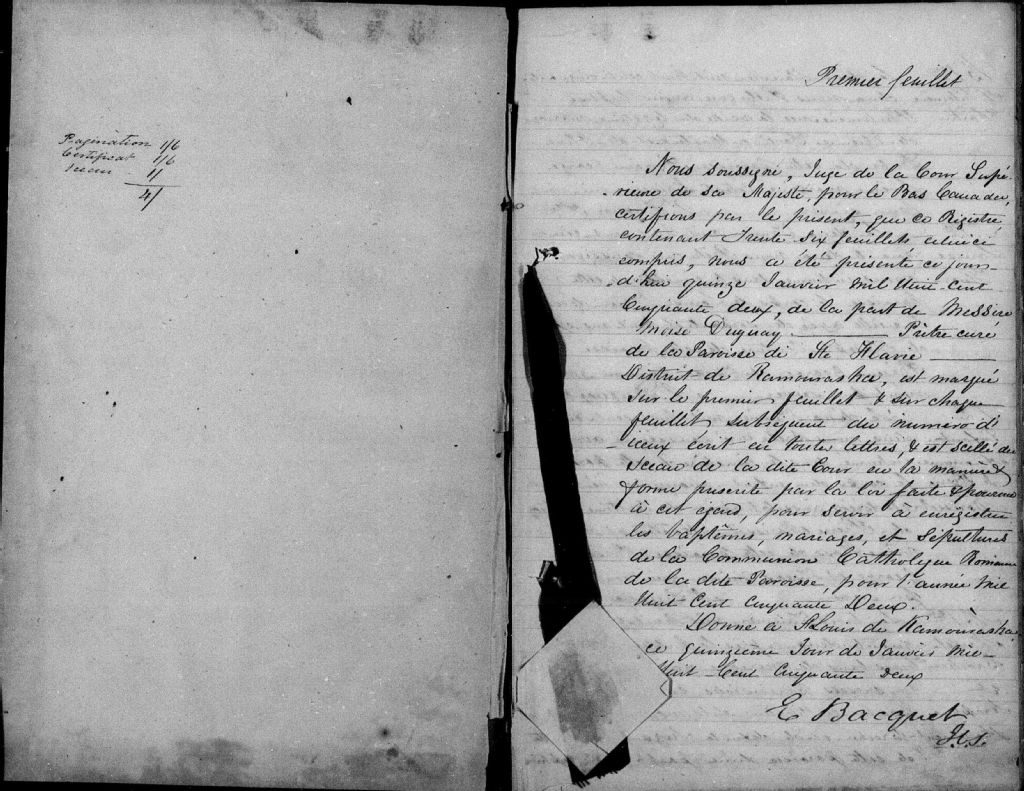 Pagination 1/6
Certificat 1/6
Sceau 1/
4/
Premier feuillet
Nous soussigné, Juge de la Cour Supé-
rieure de sa Majesté, pour le Bas Canada,
certifions par le présent, que ce Régistre
contenant Trente Six feuillets, celui ci
compris, nous a été présenté ce jour-
d'hui quinze Janvier mil Huit Cent
Cinquante deux, de la part de Messire
Moise Duguay Prêtre curé
de la Paroisse de Ste Flavie
District de Kamouraska, est marqué
sur le premier feuillet & sur chaque
feuillet subséquent du numéro d'
iceux écrit en toute lettres, & est scellé du
Sceau de la dite Cour en la manière &
forme prescrite par la loi faite & pourvue
à cet égard, pour servir à enrégistrer
les baptêmes, mariages, et Sépultures
de la Communion Catholique Romaine
de la dite Paroisse, pour l'année Mil
Huit Cent Cinquante Deux.
Donné à St Louis de Kamouraska
ce quinzième Jour de Janvier Mil-
Huit Cent Cinquante deux
E Bacquet
J.C.S.